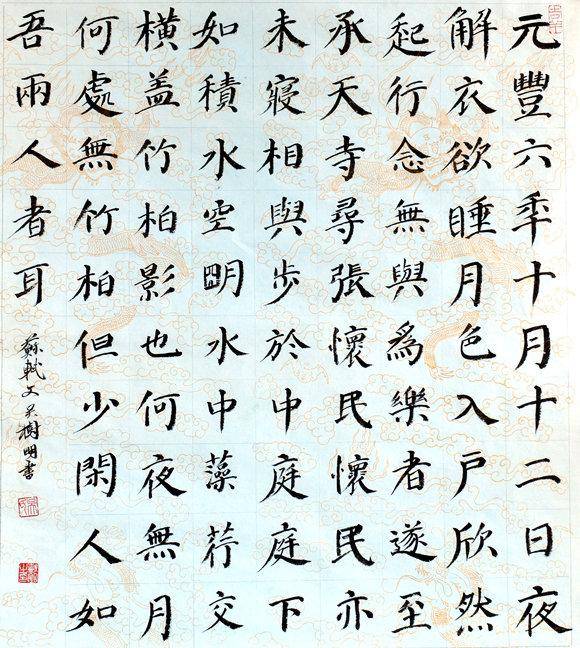 元豐六年十月十二日夜
解衣欲睡月色入户欣然
起行念無與爲樂者遂至
承天寺尋張懷民懷民亦
未寢相與步於中庭庭下
如積水空明水中藻荇交
橫蓋竹柏影也何夜無月
何處無竹柏但少閑人如
吾兩人者耳
蘇軾文吴樹明書